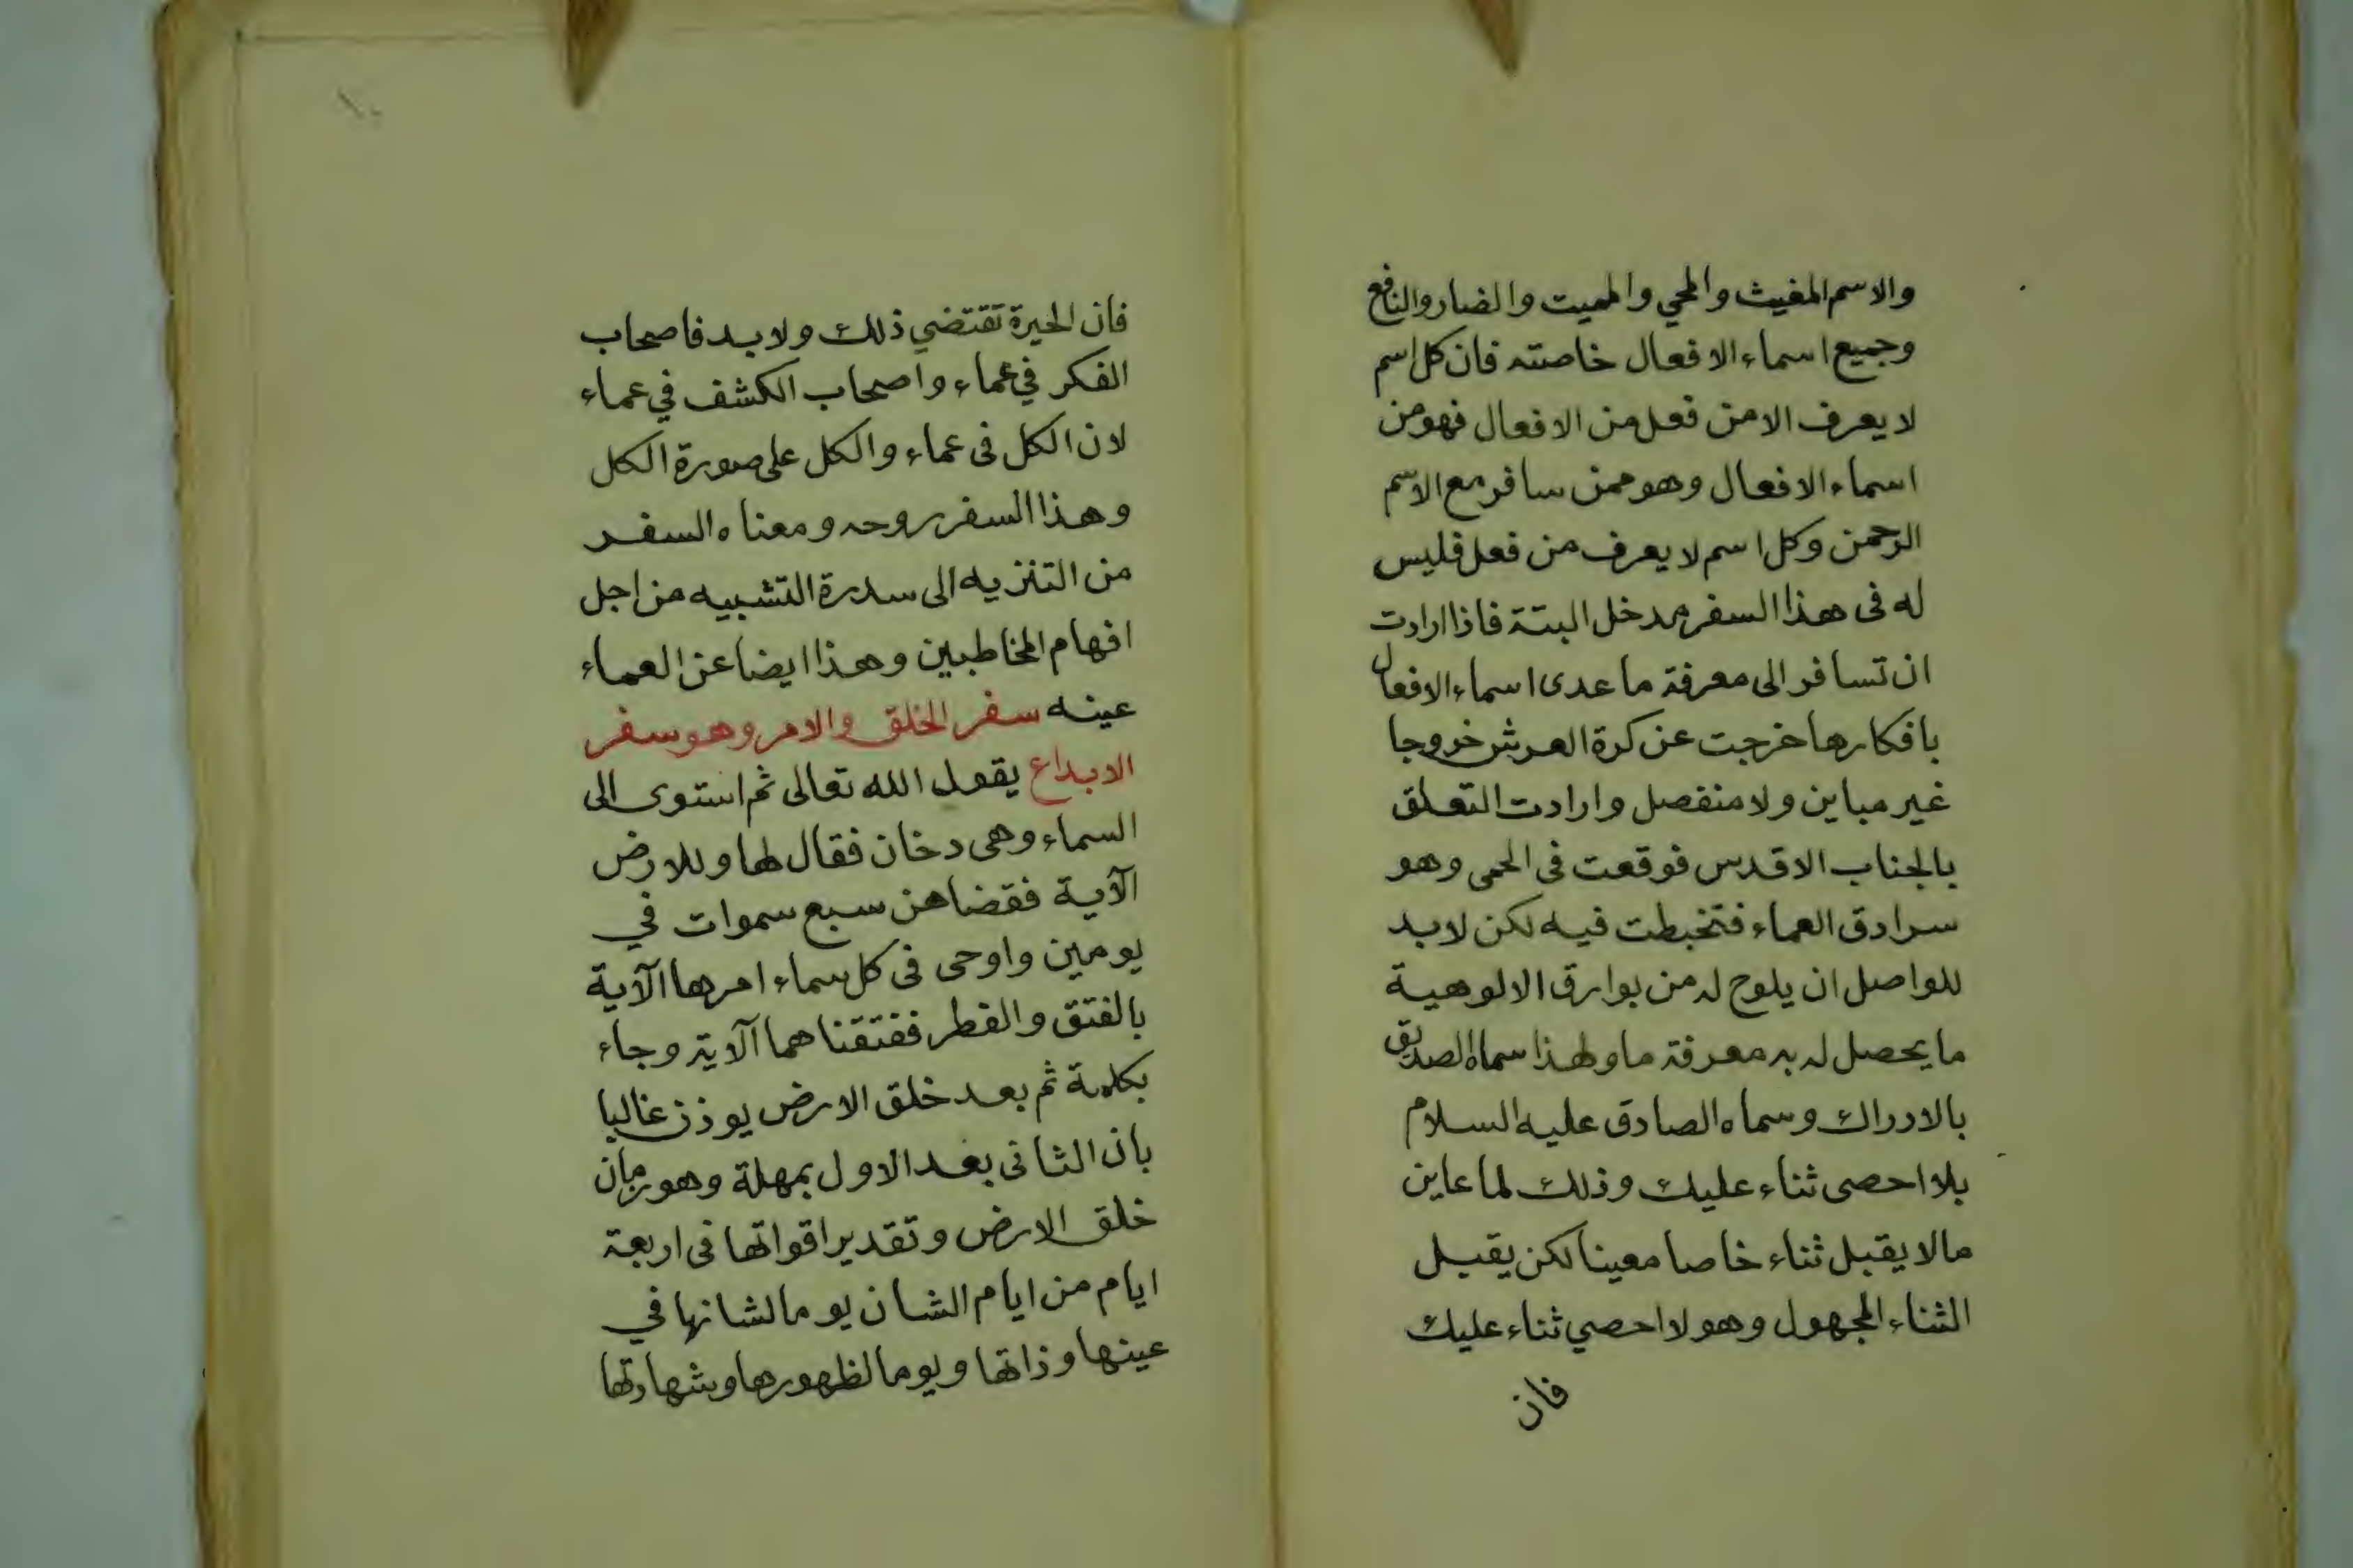 والاسم المغيث والمحي والمميت والضار والنافع
وجميع اسماء الافعال خاصته فان كل اسم
لا يعرف الا من فعل من الافعال فهو من
اسماء الافعال وهو ممن سافر مع الاسم
الرحمن وكل اسم لا يعرف من فعل فليس
له فى هذا السفر مدخل البتة فاذا ارادت
ان تسافر الى معرفة ما عدى اسماء الافعال
بافكارها خرجت عن كرة العرش خروجا
غير مباين ولا منفصل وارادت التعلق
بالجناب الاقدس فوقعت فى الحمى وهو
سرادق العماء فتخبطت فيه لكن لا بد
للواصل ان يلوح له من بوارق الالوهية
ما يحصل له به معرفة ما ولهذا سماه الصديق
بالادراك وسماه الصادق عليه السلام
بلا احصى ثناء عليك وذلك لما عاين
مالا يقبل ثناء خاصا معينا لكن يقبل
الثناء المجهول وهو لا احصي ثناء عليك
فان
١٠
فان الحيرة تقتضي ذلك ولا بد فاصحاب
الفكر في عماء واصحاب الكشف في عماء
لان الكل فى عماء والكل على صورة الكل
وهذا السفر روحه ومعناه السفر
من التنزيه الى سدرة التشبيه من اجل
افهام المخاطبين وهذا ايضا عن العماء
عينه سفر الخلق والامر وهو سفر
الابداع يقول الله تعالى ثم استوى الى
السماء وهى دخان فقال لها وللارض
الآية فقضاهن سبع سموات في
يومين واوحى فى كل سماء امرها الآية
بالفتق والفطر ففتقناهما الآية وجاء
بكلمة ثم بعد خلق الارض يوذن غالبا
بان الثانى بعد الاول بمهلة وهو زمان
خلق الارض وتقدير اقواتها فى اربعة
ايام من ايام الشان يوما لشانها في
عينها وذاتها ويوما لظهورها وشهادتها